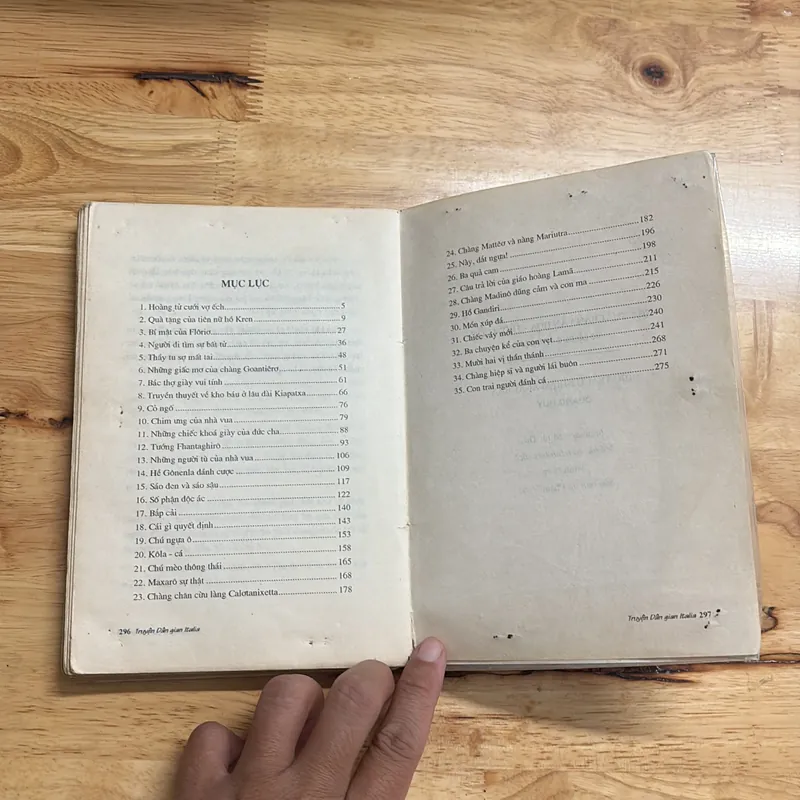 MỤC LỤC
1. Hoàng tử cưới vợ ếch 5
2. Quà tặng của tiên nữ hồ Kren 9
3. Bí mật của Flôriơ 27
4. Người đi tìm sự bất tử 36
5. Thầy tu sợ mất tai 48
6. Những giấc mơ của chàng Goantiêrơ 51
7. Bác thợ giày vui tính 61
8. Truyền thuyết về kho báu ở lâu đài Kiapatxa 66
9. Cỏ ngố 76
10. Chim ưng của nhà vua 79
11. Những chiếc khoá giày của đức cha 88
12. Tướng Fhantaghirò 93
13. Những người tù của nhà vua 106
14. Hề Gônenla đánh cược 109
15. Sáo đen và sáo sậu 117
16. Số phận độc ác 122
17. Bắp cải 140
18. Cái gì quyết định 143
19. Chú ngựa ô 153
20. Kôla - cá 158
21. Chú mèo thông thái 165
22. Maxarô sự thật 168
23. Chàng chăn cừu làng Calotanixetta 178
296 Truyện Dân gian Italia
24. Chàng Mattêơ và nàng Mariutra 182
25. Này, dắt ngựa! 196
26. Ba quả cam 198
27. Câu trả lời của giáo hoàng Lamã 211
28. Chàng Madinô dũng cảm và con ma 215
29. Hồ Gandiri 226
30. Món xúp đá 230
31. Chiếc váy mới 240
32. Ba chuyện kể của con vẹt 241
33. Mười hai vị thần thánh 268
34. Chàng hiệp sĩ và người lái buôn 271
35. Con trai người đánh cá 275
Truyện Dân gian Italia 297